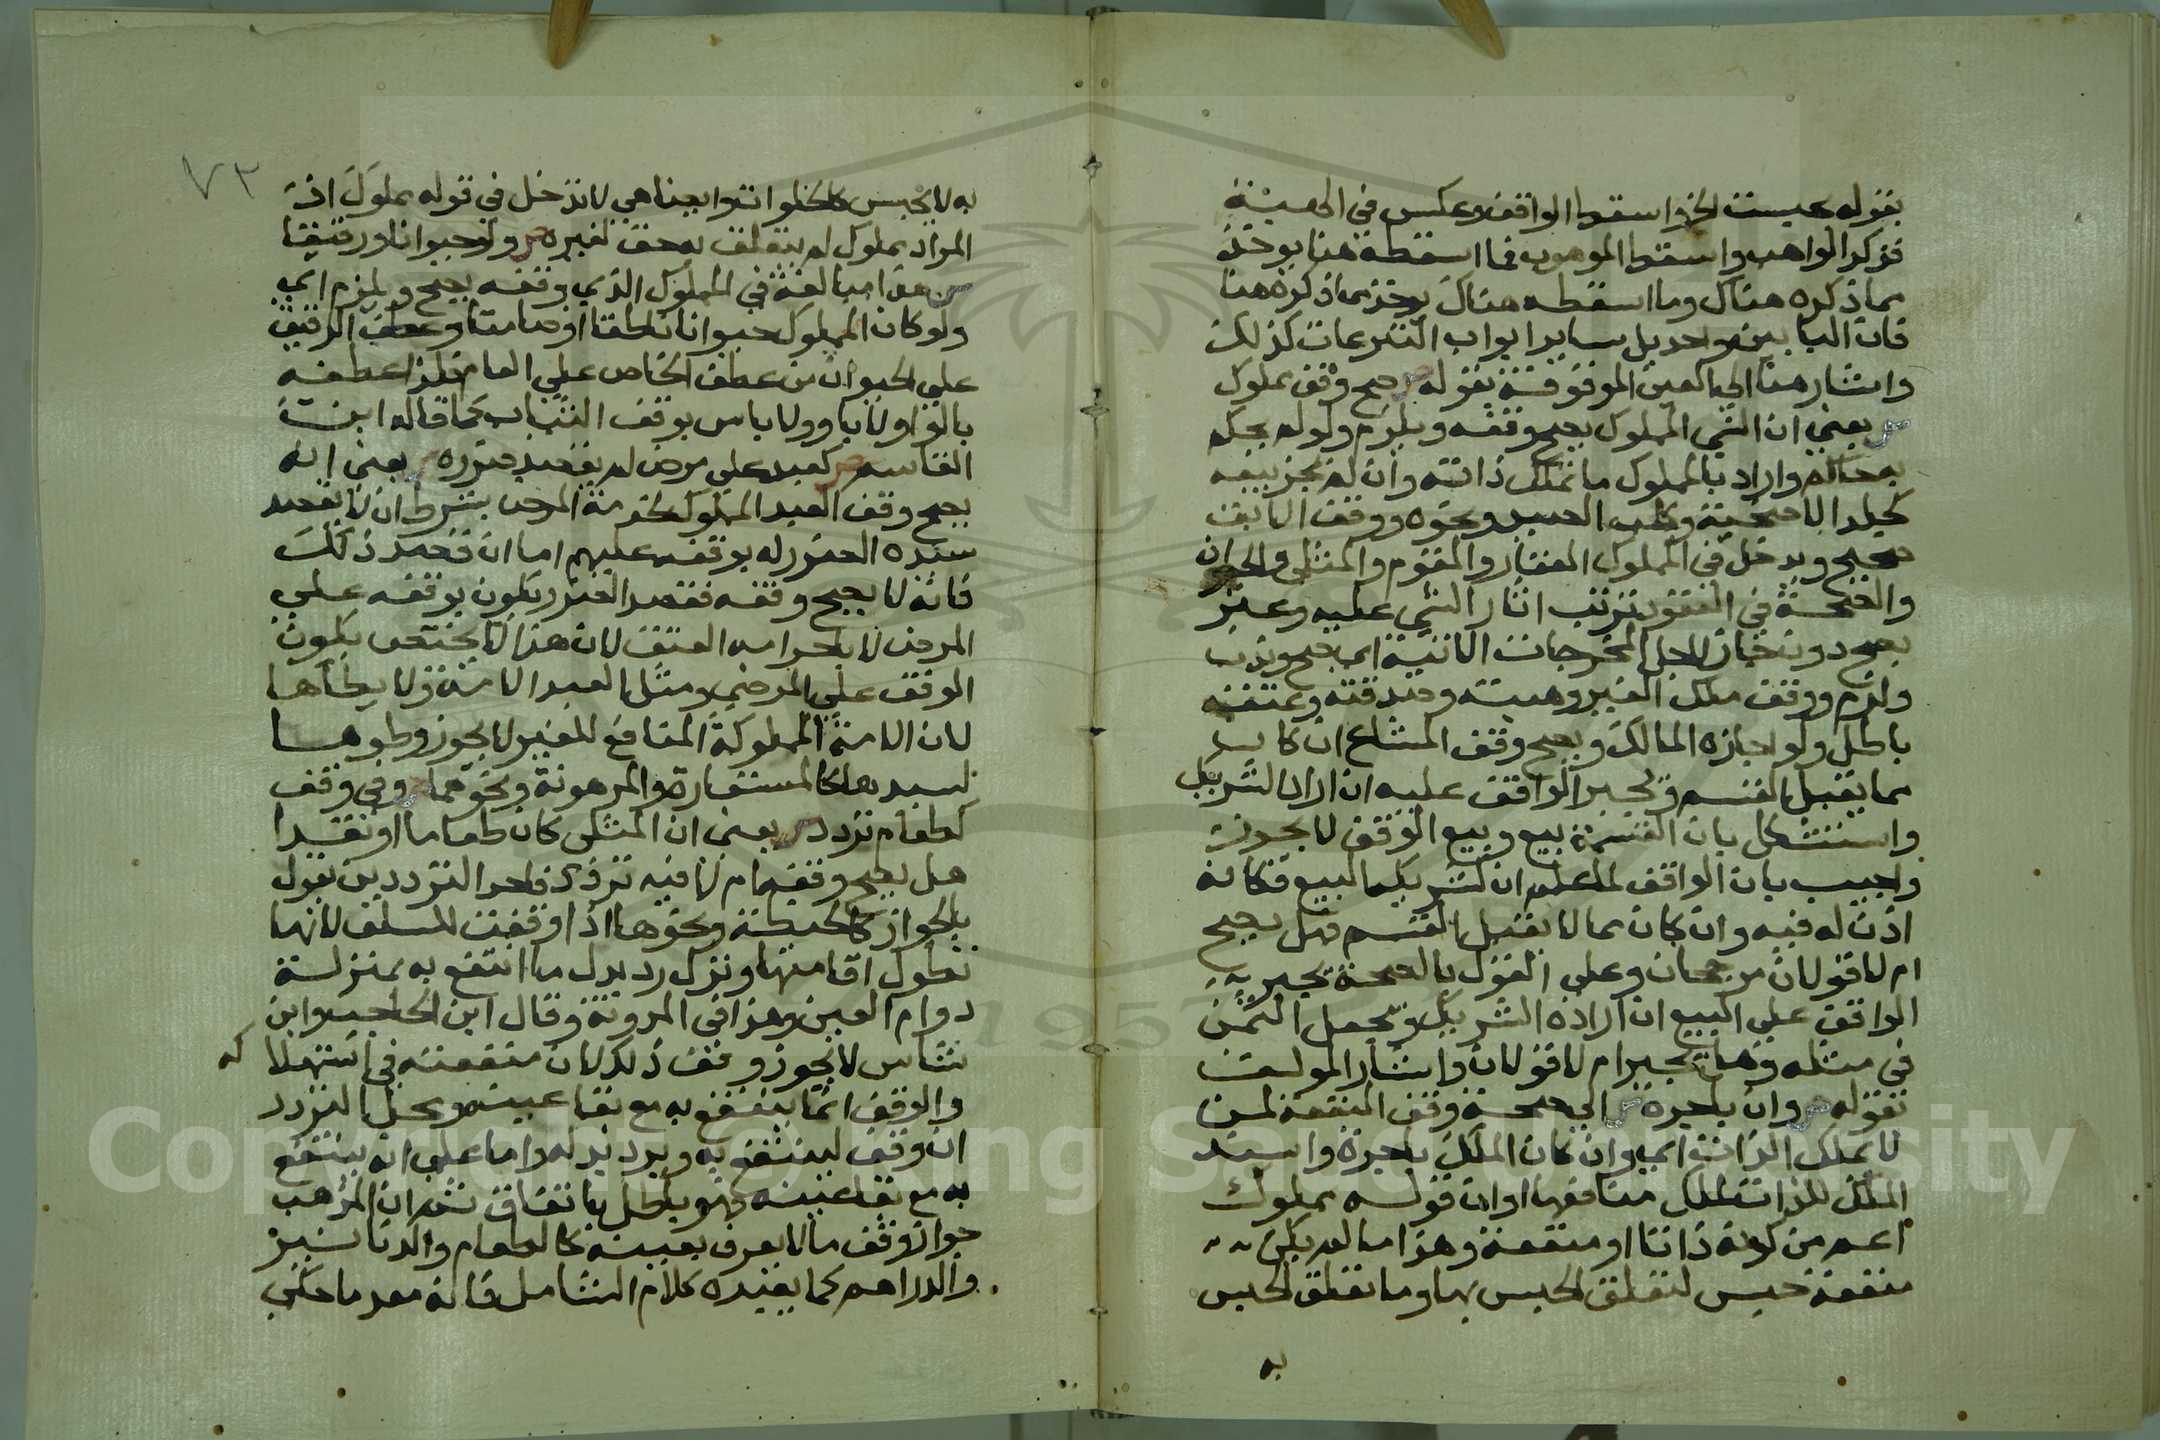 بقوله حبست الخ واسقط الواقف وعكس في الهبة
فذكر الواهب واسقط الموهوب فما اسقطه هنا يوخذ
مما ذكره هناك وما اسقطه هناك يوخذ مما ذكره هنا
فان البابين واحد بل ساير ابواب التبرعات كذلك
واشار هنا الي العين الموقوفة بقوله ص صح وقف مملوك
ش يعني ان الشي المملوك يصح وقفه ويلزم ولو لم يحكم
به حاكم واراد بالمملوك ما تملك ذاته وان لم يجز بيعه
كجلد الاضحية وكلب الصيد ونحوه ووقف الابق
صحيح ويدخل في المملوك العقار والمقوم والمثلي والحيوان
والصحة في العقود ترتب اثار الشي عليه وعبر
بصح دون جاز لاجل المخرجات الاتية اي صح وندب
ولزم ووقف ملك الغير وهبته وصدقته وعتقه
باطل ولو اجازه المالك ويصح وقف المشاع ان كان
مما يقبل القسم ويجبر الواقف عليه ان اراد الشريك
واستشكل بان القسمة بيع وبيع الوقف لا يجوز
واجيب بان الواقف لما علم ان لشريكه البيع فكانه
اذن له فيه وان كان مما لا يقبل القسم فهل يصح
ام لا قولان مرجحان وعلي القول بالصحة يجبر
الواقف علي البيع ان اراده الشريك ويجعل الثمن
في مثله وهل يجبر ام لا قولان واشار المولف
بقوله ص وان باجرة ش الي صحة وقف المنفعة لمن
لا يملك الذات اي وان كان الملك باجرة واسند
الملك للذات لملك منافعها او ان قوله مملوك
اعم من كونه ذاتا او منفعة وهذا ما لم يكن
منفعة حبس لتعلق الحبس بها وما تعلق الحبس
به
٧٣
به لا يحبس كالخلوات توابعنا هي لا تدخل في قوله مملوك اذ
المراد مملوك لم يتعلق به حق لغيره ص ولو حيوانا ورقيقا
ش هذا مبالغة في المملوك الذي وقفه يصح ويلزم اي
ولو كان المملوك حيوانا ناطقا او صامتا وعطف الرقيق
علي الحيوان من عطف الخاص علي العام فلذا عطفه
بالواو لا باو ولا باس بوقف الثياب كما قاله ابن
القاسم ص كعبد علي مرضي لم يقصد ضرره ش يعني انه
يصح وقف العبد المملوك لخدمة المرضى بشرط ان لا يقصد
سيده الضرر له بوقفه عليهم اما ان قصد ذلك
فانه لا يصح وقفه فقصد الضرر يكون بوقفه علي
المرضى لا باحرامه العتق لان هذا لا يختص بكون
الوقف علي المرضي ومثل العبد الامة ولا يطأها
لان الامة المملوكة المنافع للغير لا يجوز وطوها
لسيدها كالمستعارة والمرهونة ونحوهما ص وفي وقف
كطعام تردد ش يعني ان المثلي كان طعاما او نقدا
هل يصح وقفه ام لا فيه تردد فاحد الترددين يقول
بالجواز كالحنطة ونحوها اذا وقفت للسلف لانها
تطول اقامتها ونزل رد بدل ما انتفع به بمنزلة
دوام العين وهذا في المدونة وقال ابن الحاجب وابن
شاس لا يجوز وقف ذلك لان منفعته في استهلاكه
والوقف انما ينتفع به مع بقا عينه ومحل التردد
ان وقف لينتفع به ويرد بدله واما علي انه ينتفع
به مع بقا عينه فهو باطل باتفاق ثم ان المذهب
جواز وقف ما لا يعرف بعينه كالطعام والدنانير
والدراهم كما يفيده كلام الشامل فانه بعد ما حكي